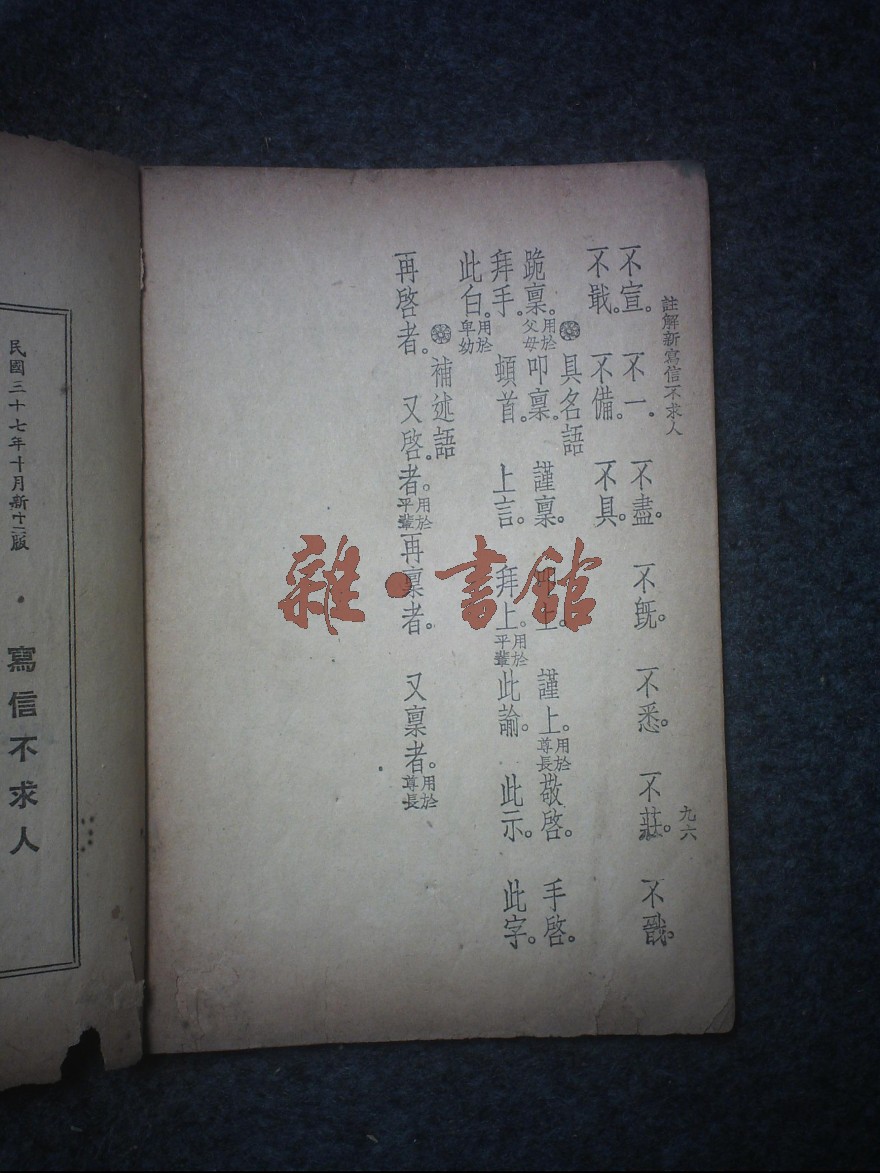 註解新寫信不求人
九六
不宣。不一。不盡。不旣。不悉。不莊。不戩。
不戢。不備。不具。
具名語
跪稟。用於父母叩稟。謹稟。叩上。謹上。用於尊長敬啓。手啓。
拜手。頓首。上言。拜上。用於平輩此諭。此示。此字。
此白。用於卑幼
補述語
再啓者。又啓者。用於平輩再稟者。又稟者。用於尊長
民國三十七年十月新十二版
寫信不求人
雜•書館